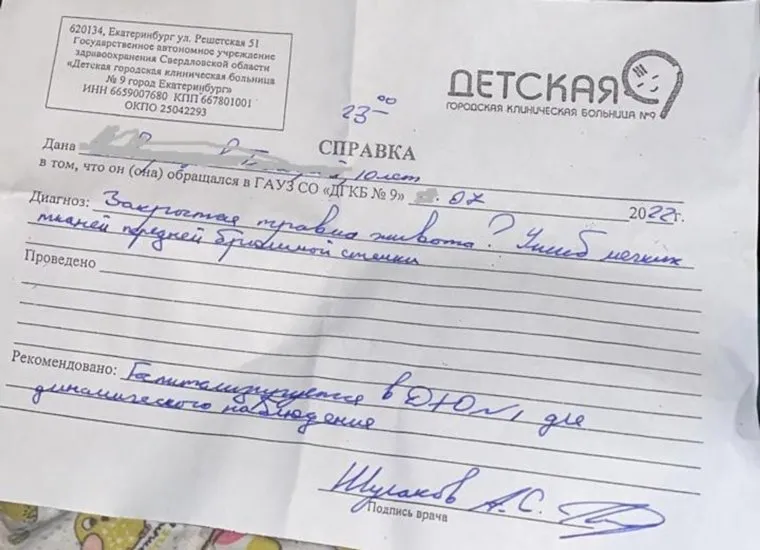 620134, Екатеринбург ул. Решетская 51
Государственное автономное учреждение
здравоохранения Свердловской области
«Детская городская клиническая больница
№ 9 город Екатеринбург»
ИНН 6659007680 КПП 667801001
ОКПО 25042293
ДЕТСКАЯ
ГОРОДСКАЯ КЛИНИЧЕСКАЯ БОЛЬНИЦА №9
23-00
СПРАВКА
Дана 10 лет
в том, что он (она) обращался в ГАУЗ СО «ДГКБ № 9» . 07 2022 г.
Диагноз: Закрытая травма живота? Ушиб мягких
тканей передней брюшной стенки
Проведено
Рекомендовано: Госпитализируется в для
динамического наблюдения
А.С.
Подпись врача